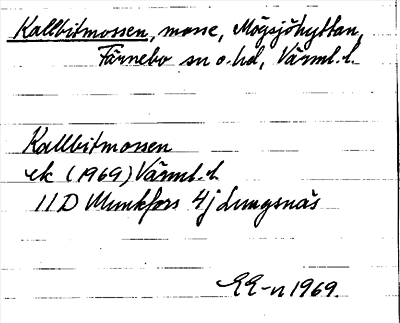 Kallbitmossen, mosse, Mögsjöhyttan,
Färnebo sn o. hd, Värml. l.
Kallbitmossen
ek (1969) Värml. l.
11D Munkfors 4j Lungsnäs
EE-n 1969.